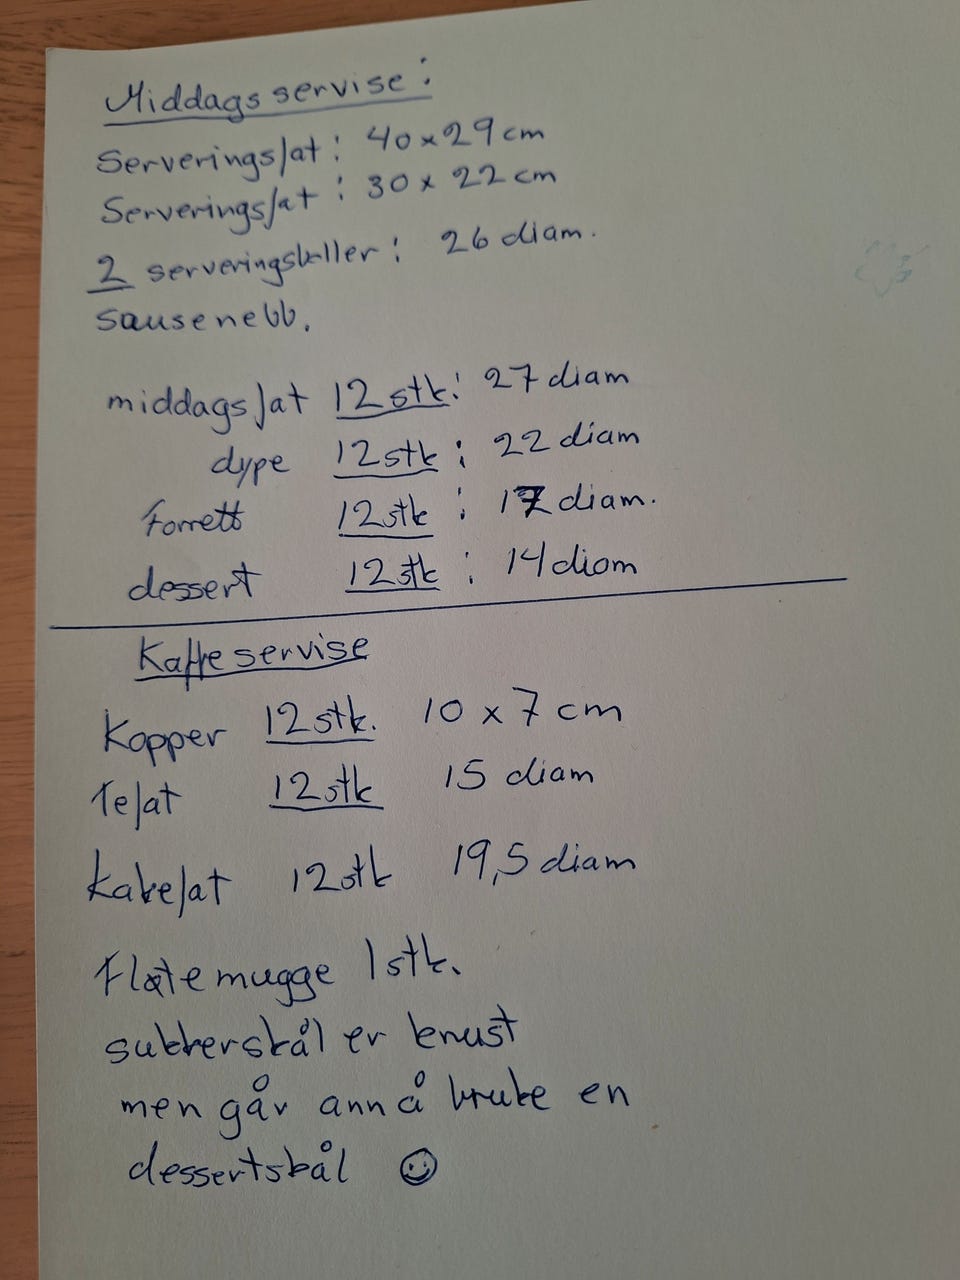 Middagsservise:
Serveringsfat: 40 x 29 cm
Serveringsfat: 30 x 22 cm
2 serveringsboller: 26 diam.
sausenebb.
middagsfat 12 stk: 27 diam
dype 12 stk: 22 diam
Forrett 12 stk: 17 diam.
dessert 12 stk: 14 diam
Kaffeservise
Kopper 12 stk. 10 x 7 cm
Tefat 12 stk 15 diam
Kakefat 12 stk 19,5 diam
Fløtemugge 1 stk.
sukkerskål er knust
men går ann å bruke en
dessertskål ☺